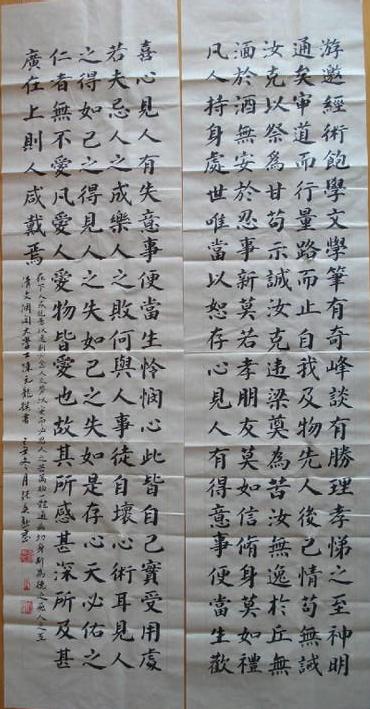 游遨經術飽學文學筆有奇峰談有勝理孝悌之至神明
通矣審道而行量路而止自我及物先人後己情苟無誠
汝克以祭為甘苟示誠汝克違梁奠為苦汝無逸於丘無
湎於酒無安於忍事新莫若孝朋友莫如信脩身莫如禮
凡人持身處世唯當以恕存心見人有得意事便當生歡
喜心見人有失意事便當生怜憫心此皆自己實受用處
若夫忌人之成樂人之敗何與人事徒自壞心術耳見人
之得如己之得見人之失如己之失如是存心天必佑之
仁者無不愛凡愛人愛物皆愛也故其所感甚深所及甚
廣在上則人咸戴焉
清文淵閣大學士陳元龍撰書